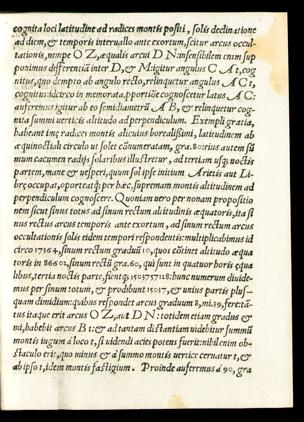 cognita loci latitudine ad radices montis positi, solis declinatione
ad diem, & temporis interuallo ante exortum, scitur arcus occul-
tationis, nempe O Z, æqualis arcui D N: insensibilem enim sup
ponimus differentiã inter D, & M: igitur angulus C A t, cog
nitus, quo dempto ab angulo recto, relinquetur angulus A C t,
cognitus: idcirco in memorata, pportiõe cognoscetur latus A C:
auferemus igitur ab eo semidiametrũ A B, & relinquetur cog-
nita summi uerticis altitudo ad perpendiculum. Exempli gratia,
habeant imq radices montis alicuius borealißimi, latitudinem ab
æquinoctiali circulo ut solet cõnumeratam, gra. 80: eius autem sũ
mum cacumen radijs solaribus illustretur, ad tertiam usq; noctis
partem, mane & uesperi, quum sol ipse initium Arietis aut Li-
bræ occupat, oporteatq; per hæc, supremam montis altitudinem ad
perpendiculum cognoscere. Quoniam uero per nonam propositio
nem sicut sinus totus ad sinum rectum altitudinis æquatoris, ita si
nus rectus arcus temporis ante exortum, ad sinum rectum arcus
occultationis solis eidem tempori respondentis: multiplicabimus id
circo 17364, sinum rectum graduũ 10, quos cõtinet altitudo æqua
toris in 86602, sinum rectũ gra. 60, qui sunt in quatuor horis æqua
libus, tertia noctis parte, fientq; 1503757128: hunc numerum diuide-
mus per sinum totum, & prodibunt 15037, & unius partis plus-
quam dimidium: quibus respondet arcus graduum 8, mi. 39, fere: tã-
tus itaque erit arcus O Z, aut D N: totidem etiam gradus &
mi, habebit arcus B t: & ad tantam distantiam uidebitur summũ
montis iugum à loco t, si uidendi acies potens fuerit: nihil enim ob-
staculo erit, quo minus & à summo montis uertice cernatur t, &
ab ipso t, idem montis fastigium. Proinde auferemus à 90, gra